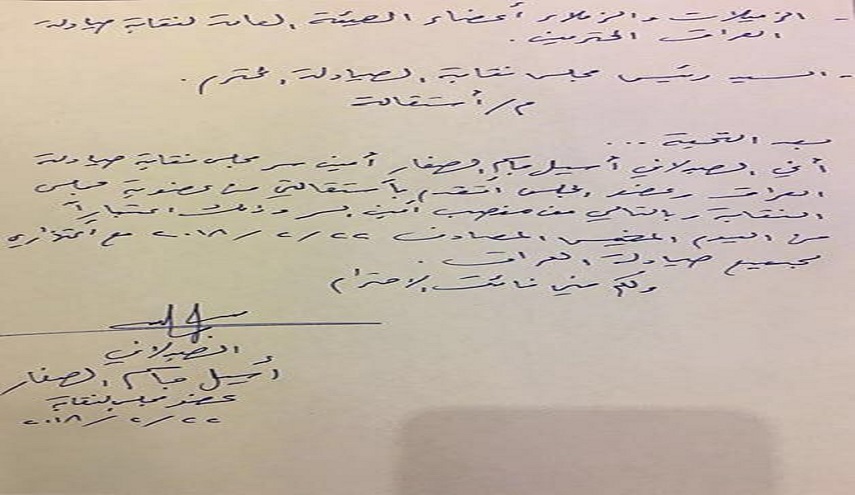 - الزميلات والزملاء أعضاء الهيئة العامة لنقابة صيادلة
العراق المحترمين.
- السيد رئيس مجلس نقابة الصيادلة المحترم.
م/ أستقالة
بعد التحية ...
أني الصيدلاني أسيل الصفار أمين سر مجلس نقابة صيادلة
العراق وعضو المجلس أتقدم بأستقالتي من عضوية مجلس
النقابة وبالتالي من منصب أمين السر وذلك اعتباراً
من اليوم الخميس المصادف ٢٢/ ٢/ ٢٠١٨ مع اعتذاري
لجميع صيادلة العراق.
ولكم مني فائق الاحترام
الصيدلاني
أسيل الصفار
عضو مجلس النقابة
٢٢/ ٢/ ٢٠١٨